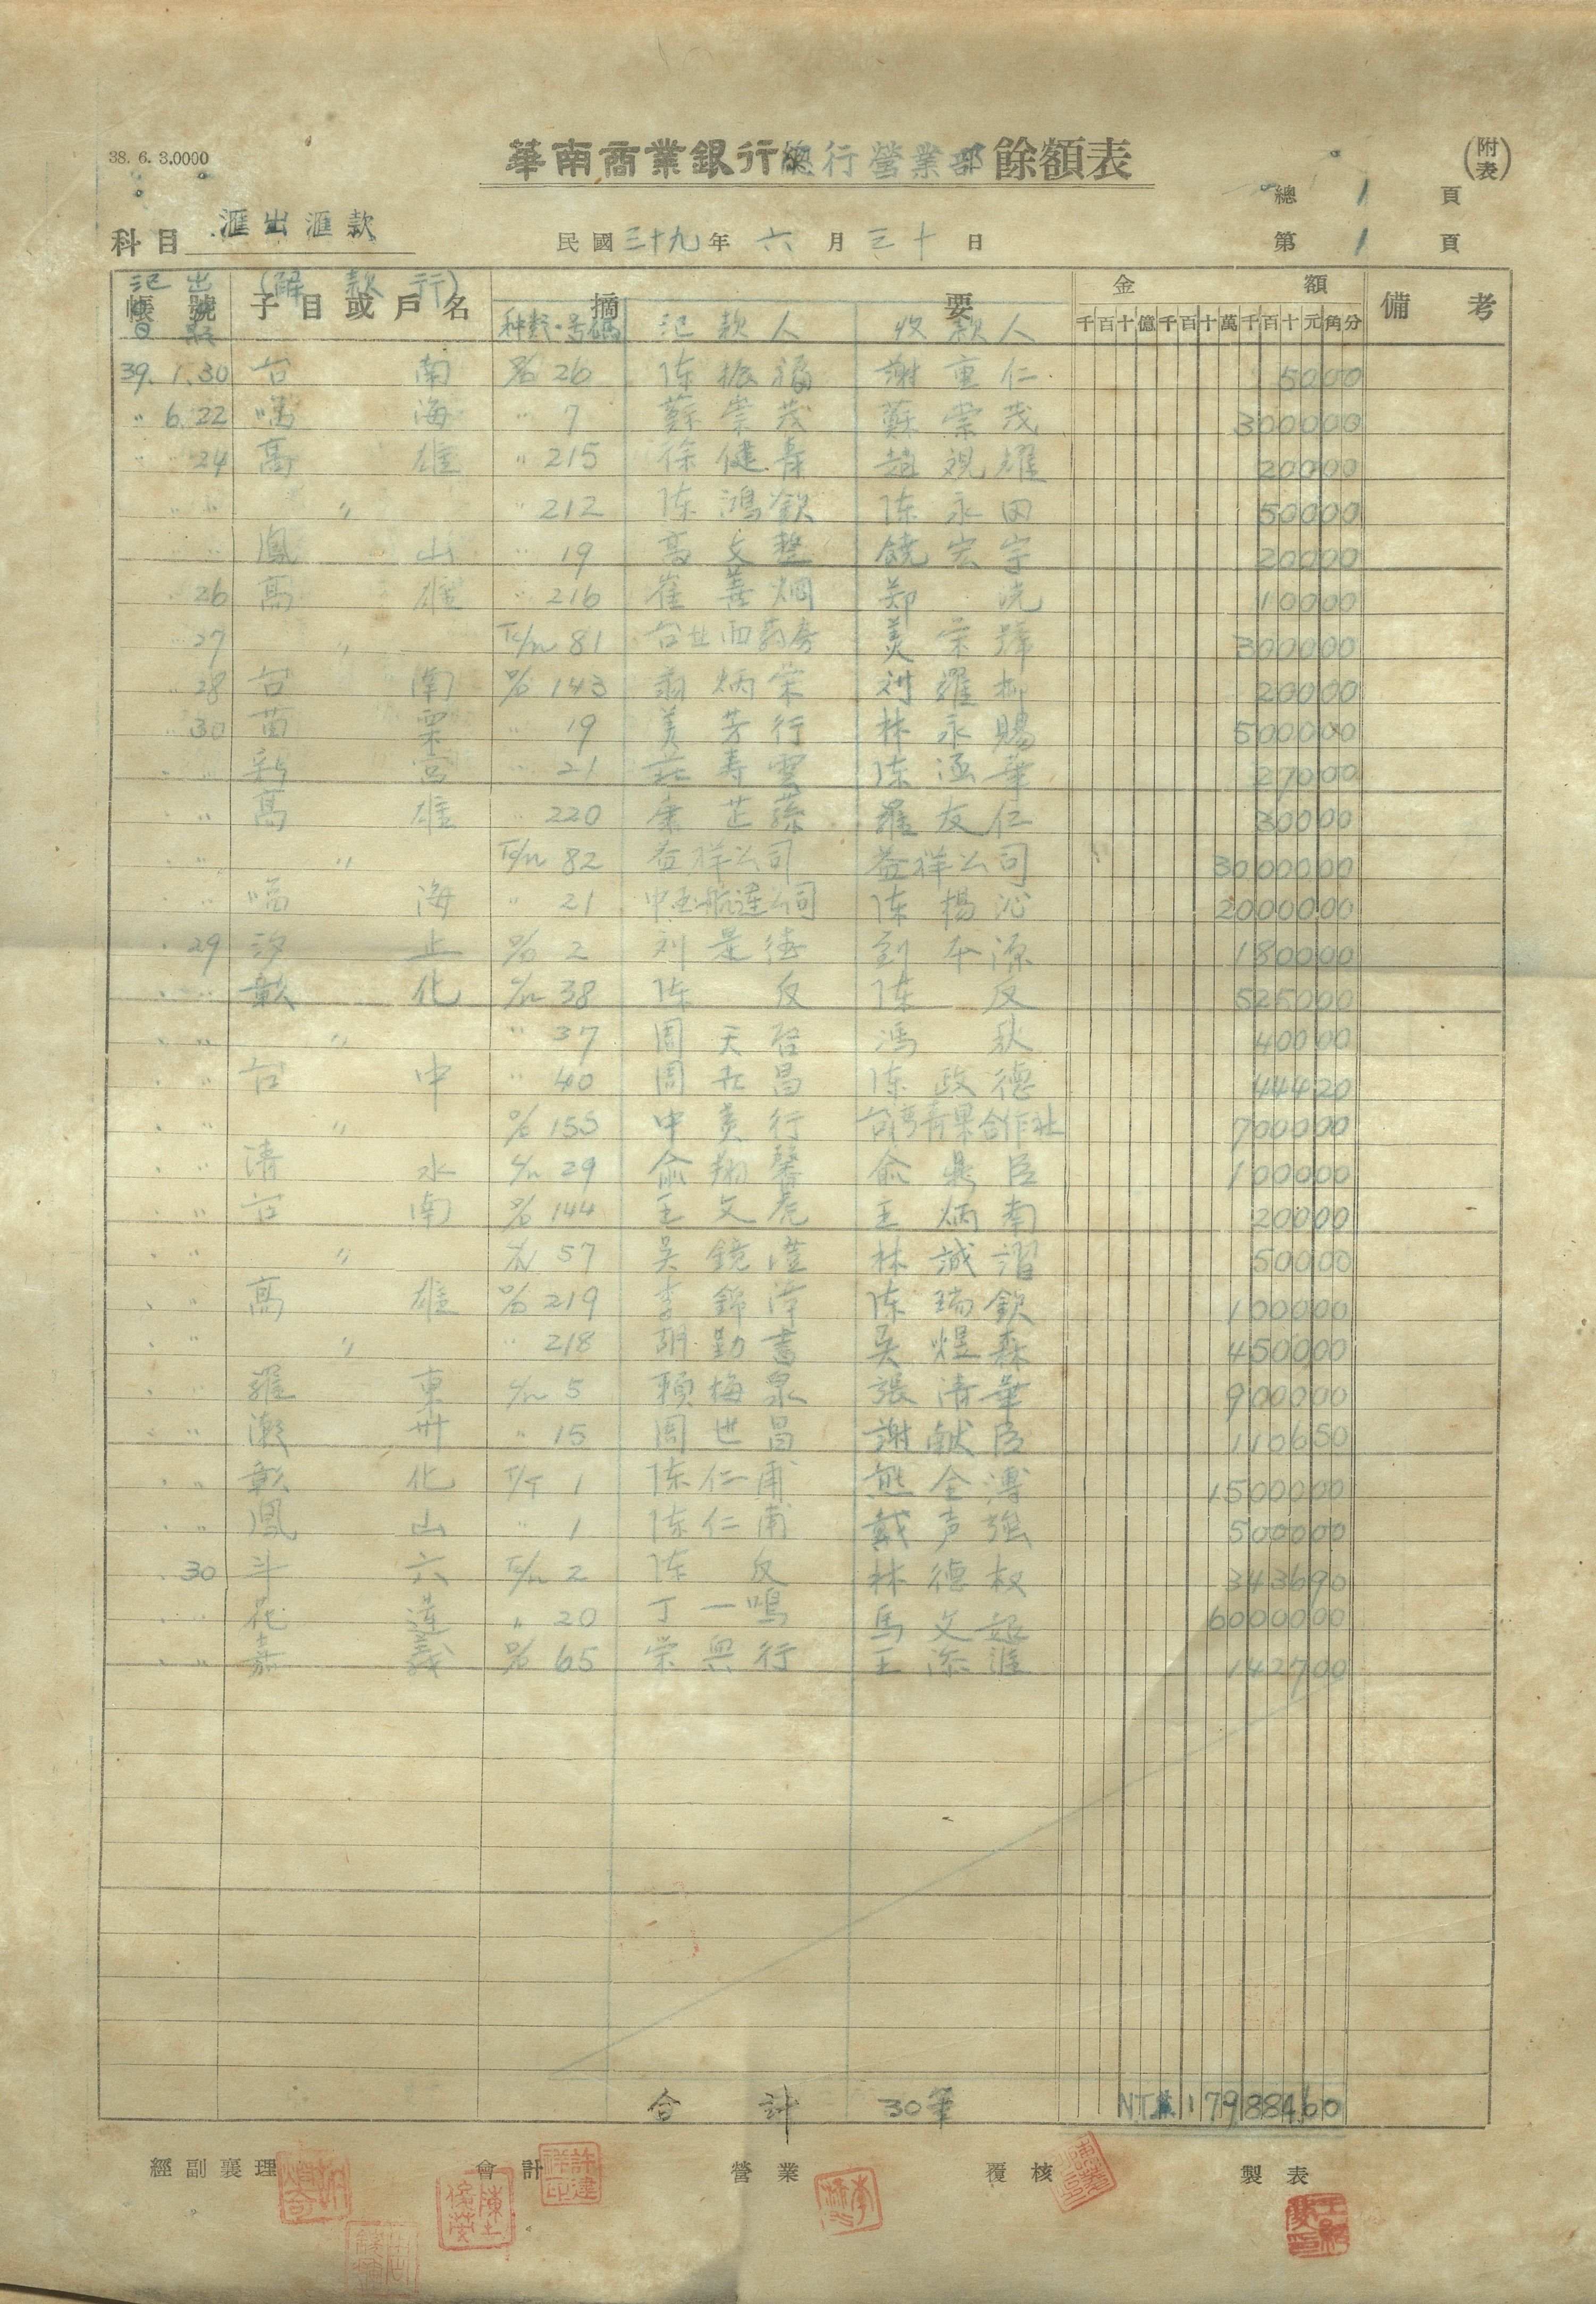 38. 6. 3.0000
華南商業銀行總行營業部餘額表
(附表)
總 1 頁
科目 滙出滙款
民國三十九年 六 月 三十 日
第 1 頁
帳號 子目或戶名 (解款行) 摘要 金額 備考
種類·号碼 汇款人 收款人 千百十億千百十萬千百十元角分
39. 1.30 台南 D/D 26 陈振福 謝重仁 5000
〃 6.22 临海 〃 7 蘇崇茂 蘇崇茂 300000
〃 〃 24 高雄 〃 215 徐健春 趙覌耀 20000
〃 〃 〃 〃 212 陈鴻欽 陈永田 50000
〃 〃 鳳山 〃 19 高文整 饒宏宇 20000
〃 26 高雄 〃 216 崔善烟 郑 10000
〃 27 〃 T/N 81 台北西药房 美荣號 300000
〃 28 台南 D/D 143 翁炳荣 羅 20000
〃 30 苗栗 〃 19 美芳行 林永賜 500000
〃 〃 新宮 〃 21 莊寿雲 陈涵華 27000
〃 〃 高雄 〃 220 康芷蓀 羅友仁 30000
〃 〃 〃 T/N 82 益祥公司 益祥公司 3000000
〃 〃 临海 〃 21 航運公司 陈楊沁 2000000
〃 29 汐止 D/D 2 刘是德 劉本源 180000
〃 〃 彰化 T/N 38 陈反 陈反 525000
〃 〃 〃 〃 37 周天啓 馮秋 40000
〃 〃 台中 〃 40 周世昌 陈政德 44420
〃 〃 〃 D/D 155 中美行 台湾青果合作社 700000
〃 〃 清水 T/N 29 俞翔馨 俞鼎臣 100000
〃 〃 台南 D/D 144 王文虎 王炳南 20000
〃 〃 〃 T/N 57 吴鏡瀅 林誠 50000
〃 〃 高雄 D/D 219 李錦淳 陈瑞欽 100000
〃 〃 〃 〃 218 胡勤書 吴煜森 450000
〃 〃 羅東 T/N 5 賴梅泉 張清華 900000
〃 〃 潮州 〃 15 周世昌 謝献臣 110650
〃 〃 彰化 T/T 1 陈仁甫 熊全溥 1500000
〃 〃 鳳山 〃 1 陈仁甫 戴声強 500000
〃 30 斗六 T/N 2 陈反 林德权 343690
〃 〃 花蓮 〃 20 丁一鳴 馬文 6000000
〃 〃 嘉義 D/D 65 荣興行 王添 142700
合計 30筆 NT$ 17988460
經副襄理 會計 營業 覆核 製表